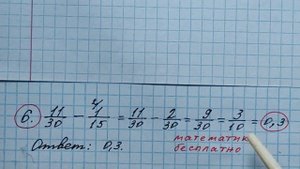 6. 11/30 - 1/15 = 11/30 - 2/30 = 9/30 = 3/10 = 0,3
Ответ: 0,3.
математика
бесплатно